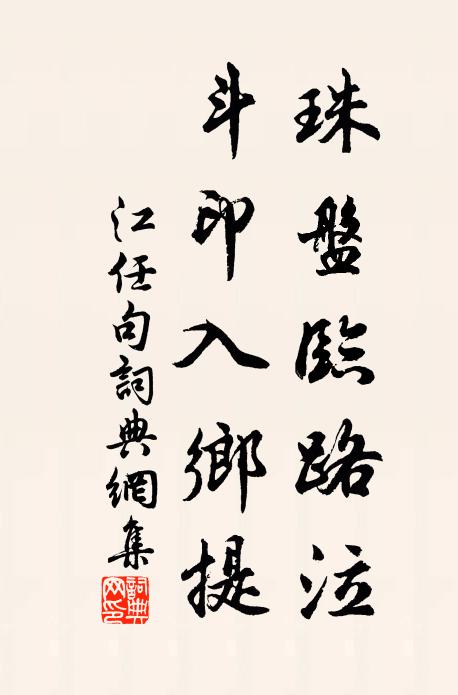 珠盤臨路泣
斗印入鄉提
江任句詞典網集
詞典網印